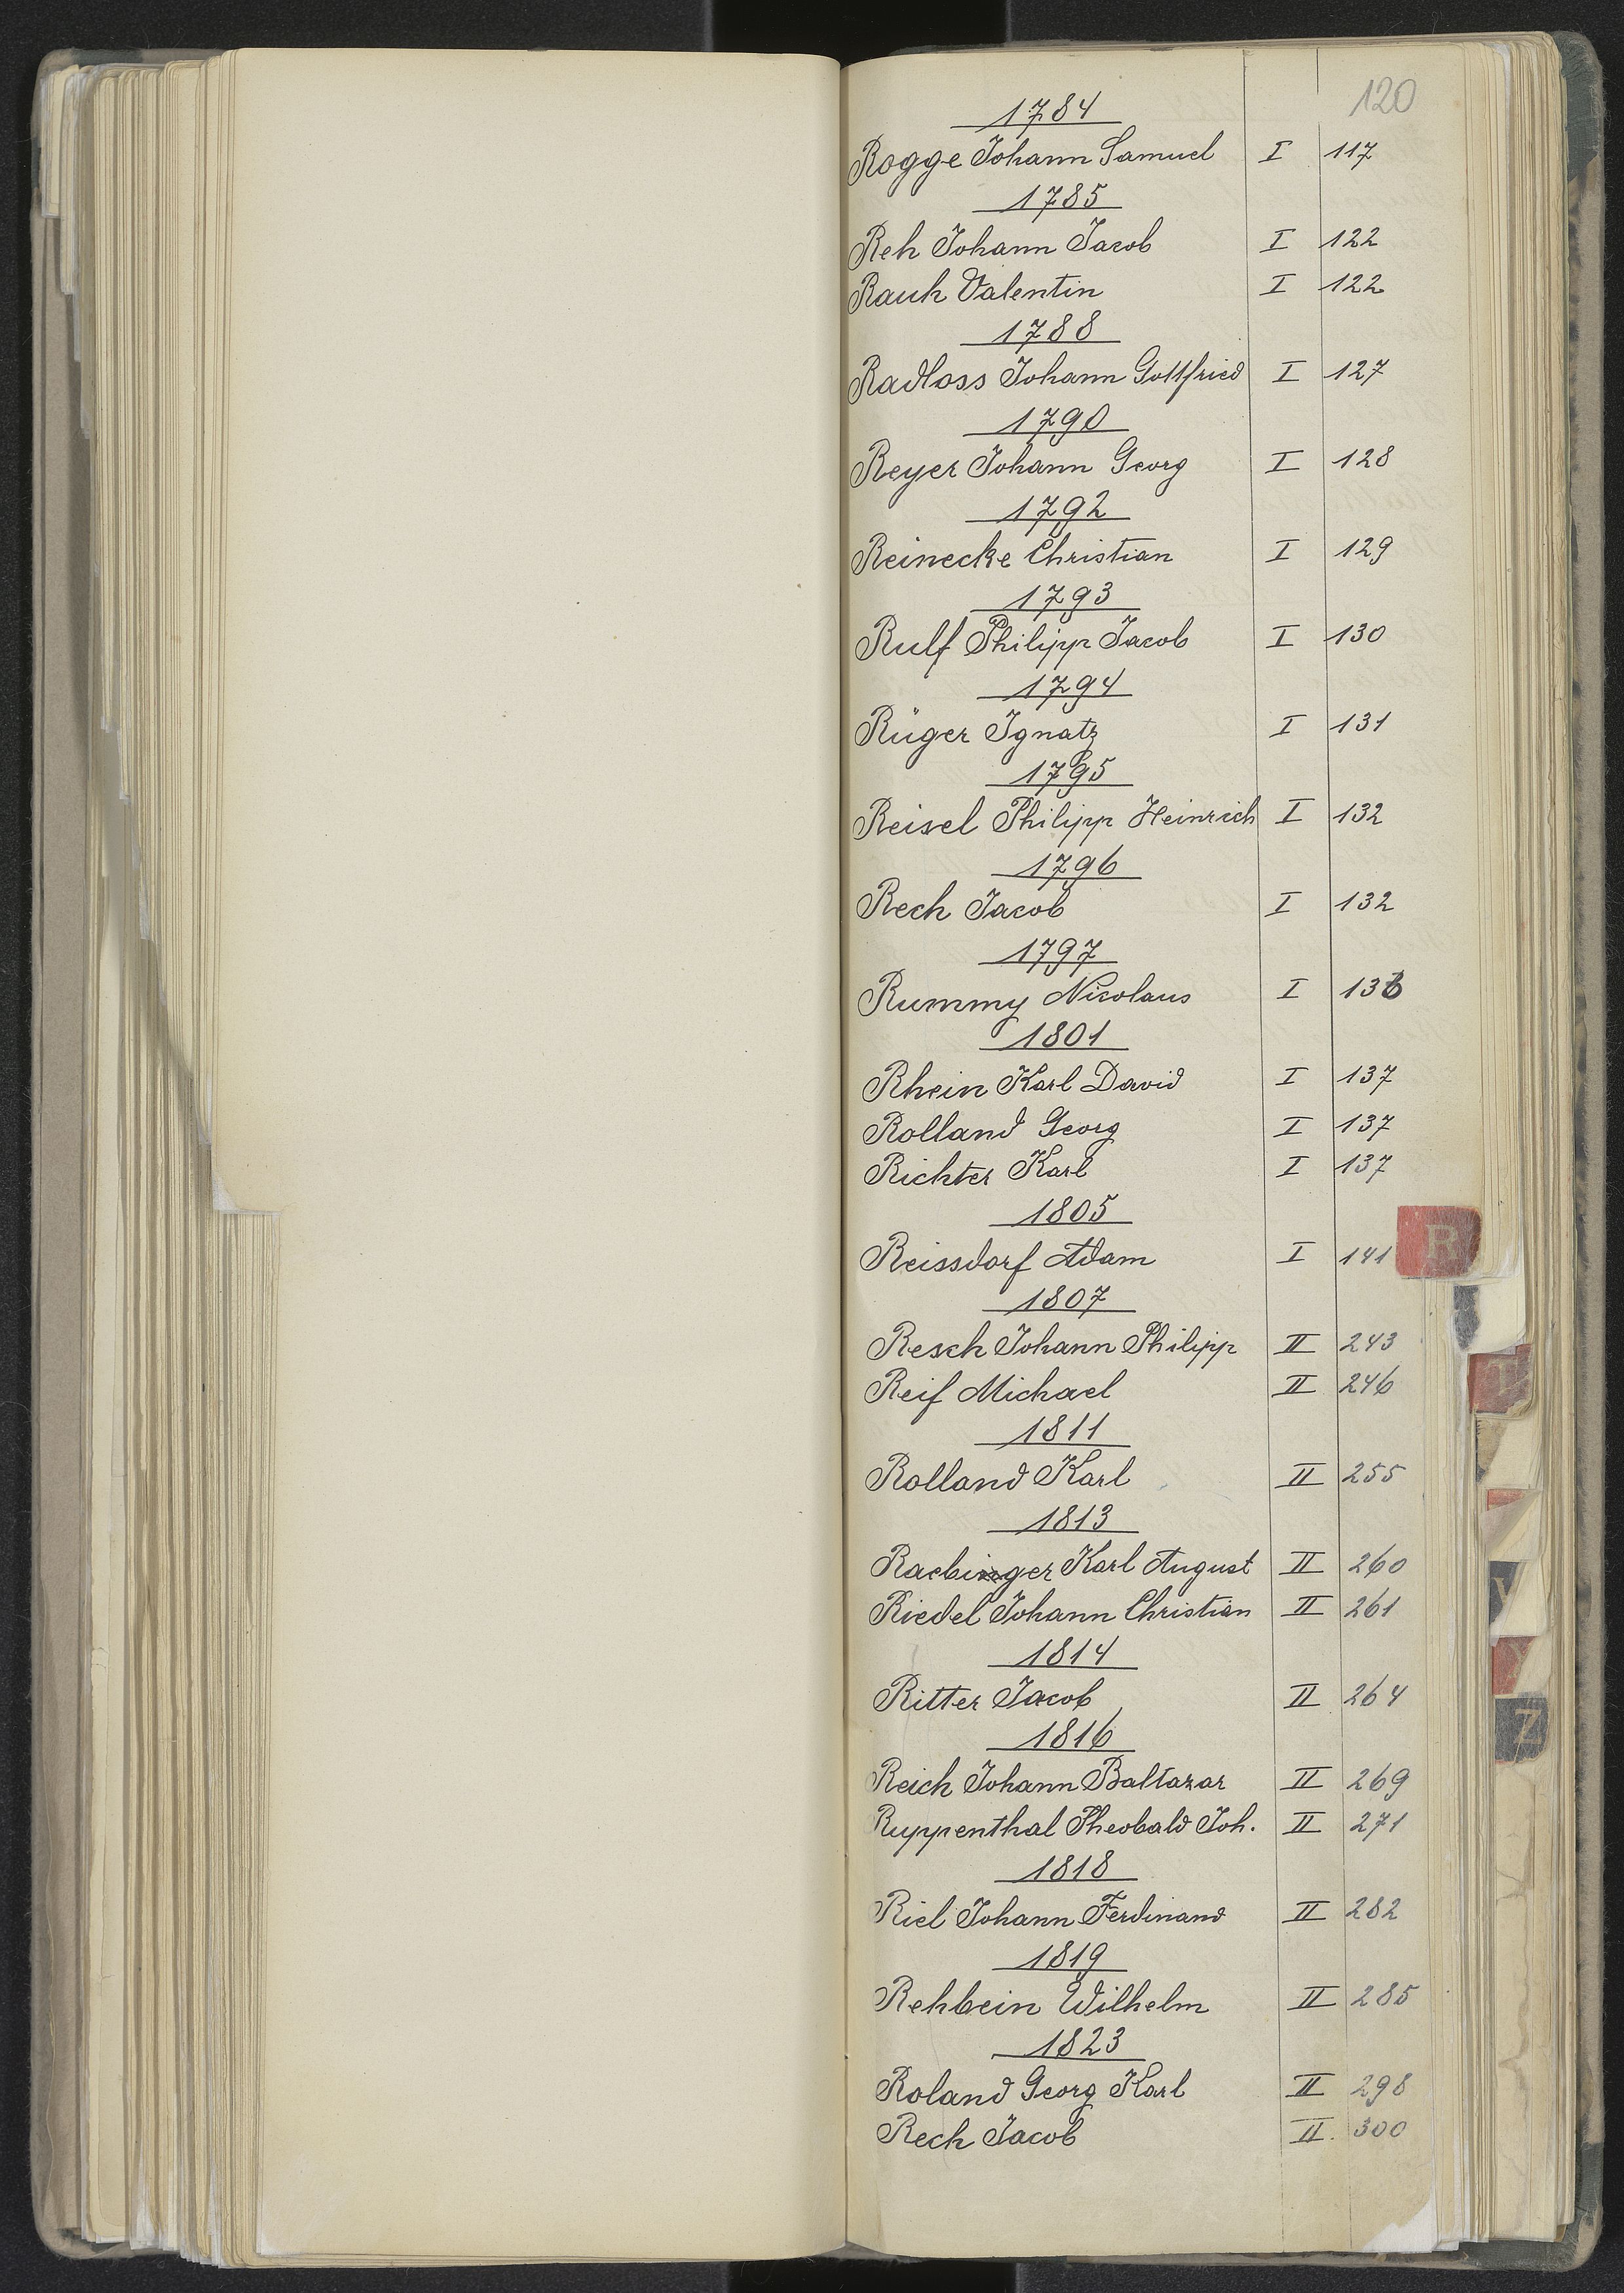 120
1784
Rogge Johann Samuel I 117
1785
Reh Johann Jacob I 122
Rauh Valentin I 122
1788
Radloss Johann Gottfried I 127
1790
Reyer Johann Georg I 128
1792
Reinecke Christian I 129
1793
Rulf Philipp Jacob I 130
1794
Rüger Ignatz I 131
1795
Reisel Philipp Heinrich I 132
1796
Rech Jacob I 132
1797
Rummy Nicolaus I 136
1801
Rhein Karl David I 137
Rolland Georg I 137
Richter Karl I 137
1805
Reissdorf Adam I 141
R
1807
Resch Johann Philipp II 243
Reif Michael II 246
T
1811
Rolland Karl II 255
1813
Raebinger Karl August II 260
Riedel Johann Christian II 261
V
1814
Ritter Jacob II 264
Z
1816
Reich Johann Baltazar II 269
Ruppenthal Theobald Joh. II 271
1818
Riel Johann Ferdinand II 282
1819
Rehbein Wilhelm II 285
1823
Roland Georg Karl II 298
Rech Jacob II. 300